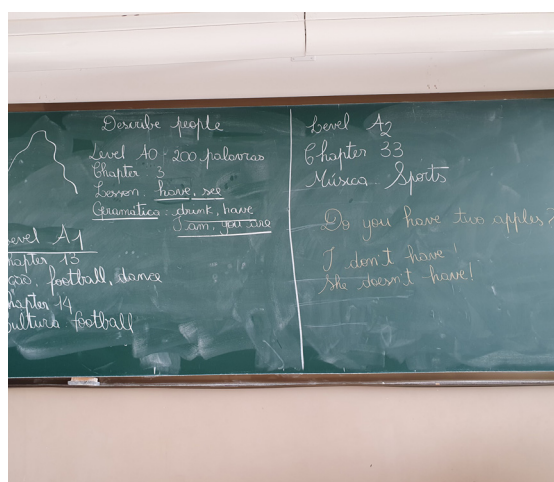 Describe people
Level A0 - 200 palavras
Chapter 3
Lesson: have, see
Gramática: drink, have
I am, you are
Level A1
Chapter 13
football, dance
Chapter 14
Cultura football
Level A2
Chapter 33
Música Sports
Do you have two apples?
I don't have!
She doesn't have!